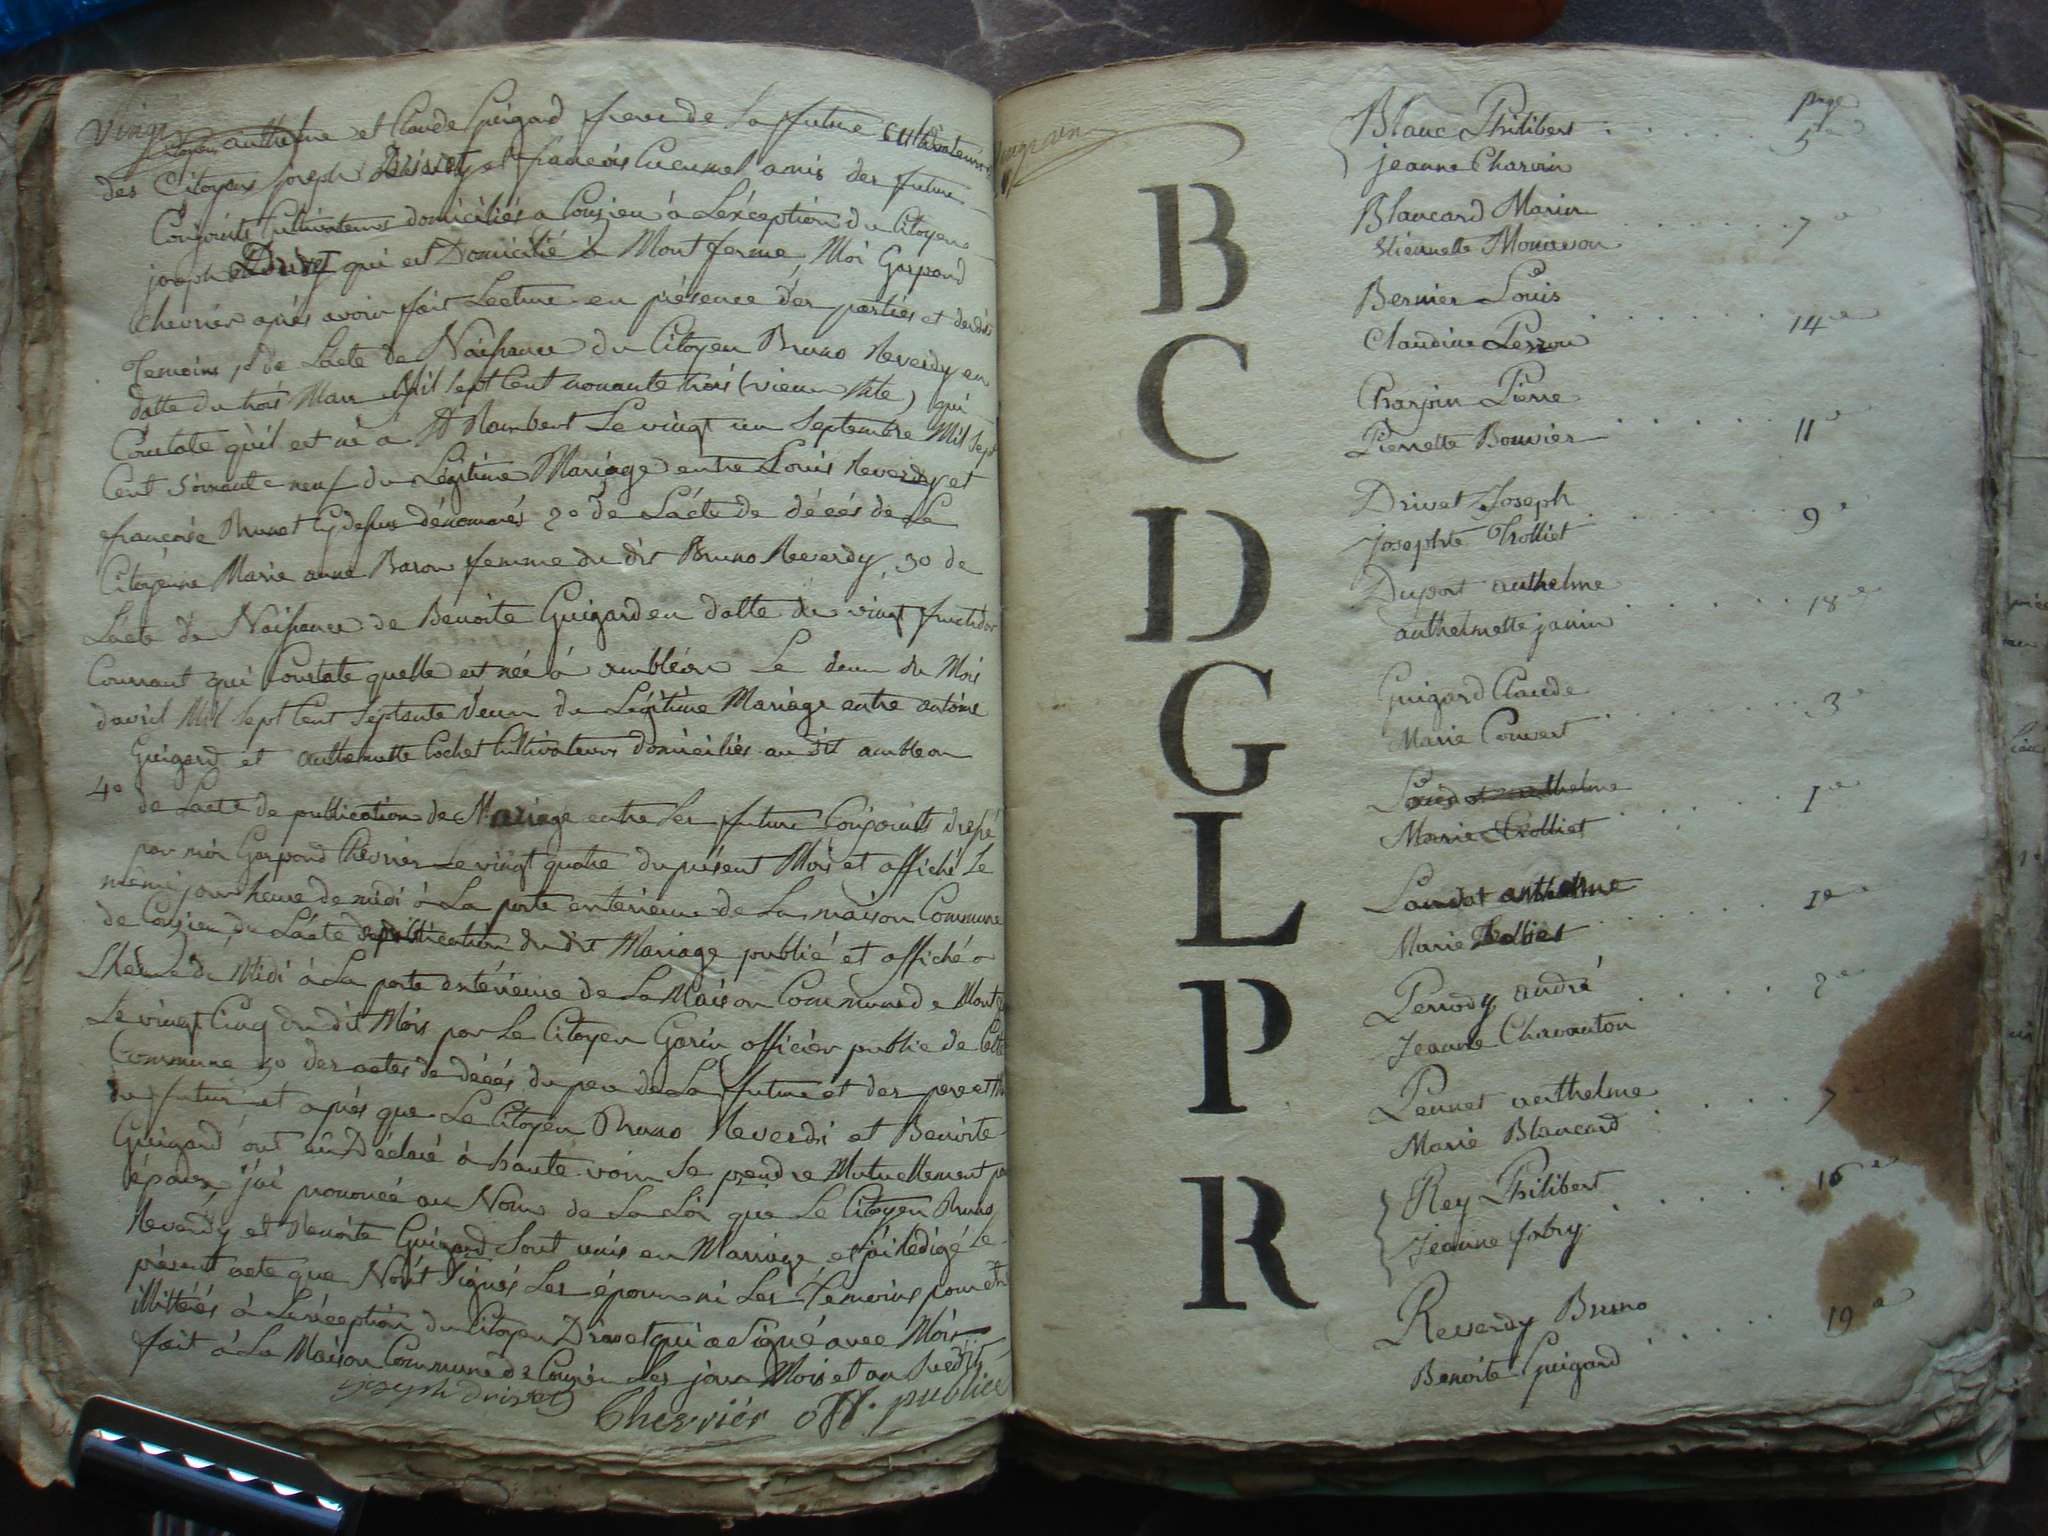 Vingt
Citoyens anthelme et Claude Guigard freres de la future cultivateurs
des Citoyens joseph Drivet et francois Cucumel amis des futurs
Conjoints Cultivateurs domiciliés a Conzieu à L'exception du Citoyen
joseph Drivet qui est Domicilié à Mont ferme, Moi Gaspard
Chevrier apiés avoir fait Lecture en présence des parties et desdits
Temoins 1º de L'acte de Naissance du Citoyen Bruno Reverdy en
datte du trois Mars Mil sept Cent nonante trois (vieux stile) qui
Constate qu'il est né a St Rambert Le vingt un Septembre Mil Sept
Cent soixante neuf du Légitime Mariage entre Louis Reverdy et
francoise Brunet Cy dessus dénommés 2º de L'acte de décés de La
Citoyenne Marie anne Baron femme du dit Bruno Reverdy, 3º de
L'acte de Naissance de Benoite Guigard en datte du vingt fructidor
Courrant qui Constate quelle est née à ambléon Le deux du Mois
davril Mil Sept Cent Septante d'eux du Légitime Mariage entre antoine
Guigard et anthelmette Cochet Cultivateurs domiciliés au dit ambleon
4º de L'acte de publication de Mariage entre Les futurs Conjoints dressé
par moi Gaspard Chevrier Le vingt quatre du présent Mois et affiché Le
même jour heure de midi à La porte exterieure de La maison Commune
de Conzieu, de L'acte de publication du dit Mariage publié et affiché a
L'heure de Midi à La porte extérieure de La Maison Commune de Mont
Le vingt Cinq du dit Mois par Le Citoyen Garin officier public de Cette
Commune 5º des actes de décés du pere de La future et des pere et
du futur et apiés que Le Citoyen Bruno Reverdi et Benoite
Guigard ont eû Déclaré à haute voix Se prendre Mutuellement
époux, j'ai prononcé au Nom de La Loi que Le Citoyen Bruno
Reverdy et Benoite Guigard Sont unis en Mariage et j'ai Rédigé Le
présent acte que N'ont Signés Les époux ni Les Témoins pour etre
illittérés à L'exception du Citoyen Drivet qui a Signé avec Moi
fait à La Maison Commune de Conzieu Les jour Mois et an Susdit
joseph drivet
Chevrier off. public
Vingt un
B
C
D
G
L
P
R
page
Blanc Philibert . . . . . . 5e
jeanne Charvin
Blancard Marin . . . . . . 7e
Etiennette Monavon
Bernier Louis . . . . . . 14e
Claudine Perron
Charpin Pierre . . . . . . 11e
Pierrette Bouvier
Drivet Joseph . . . . . . 9e
Josephte Trolliet
Duport anthelme . . . . . . 18e
anthelmette janin
Guigard Claude . . . . . . 3e
Marie Convert
Loudot anthelme . . . . . . 1e
Marie Trolliet
Loudot anthelme . . . . . . 1e
Marie Trolliet
Perrody andré
Jeanne Chavanton
Peunet anthelme . . . . . . 7
Marie Blancard
Rey Philibert . . . . . . 16e
Jeanne
Reverdy Bruno . . . . . . 19e
Benoite Guigard